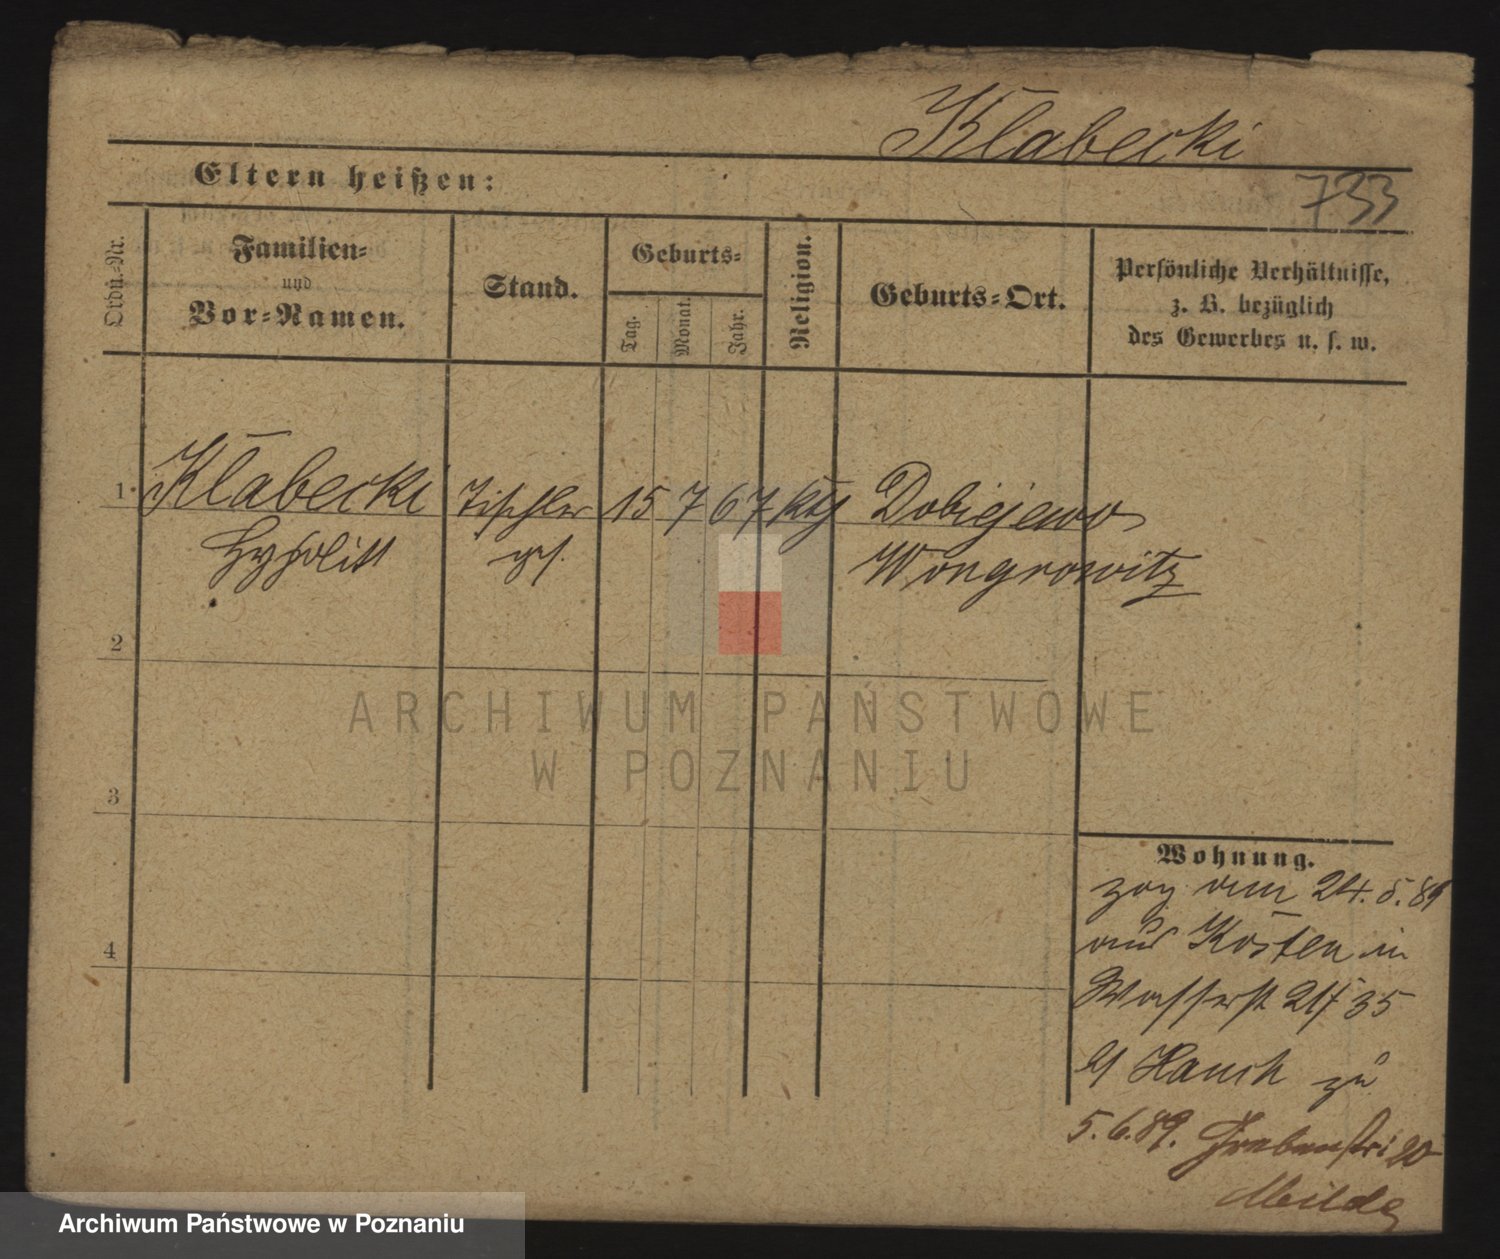 Klabecki
Eltern heißen:
733
Ordn.-Nr.
Familien-
und
Vor-Namen.
Stand.
Geburts-
Tag.
Monat.
Jahr.
Religion.
Geburts-Ort.
Persönliche Verhältnisse,
z. B. bezüglich
des Gewerbes u. s. w.
1 Klabecki Tischler 15 7 67 kth Dobiejewo
Hypolitt
Wongrowitz
2
ARCHIWUM PAŃSTWOWE
W POZNANIU
3
Wohnung.
zog am 24.5.89
4
aus Kosten in
Wasserst 24/25
b/ Hauch zu
5.6.89. Grabenstr 20
Archiwum Państwowe w Poznaniu